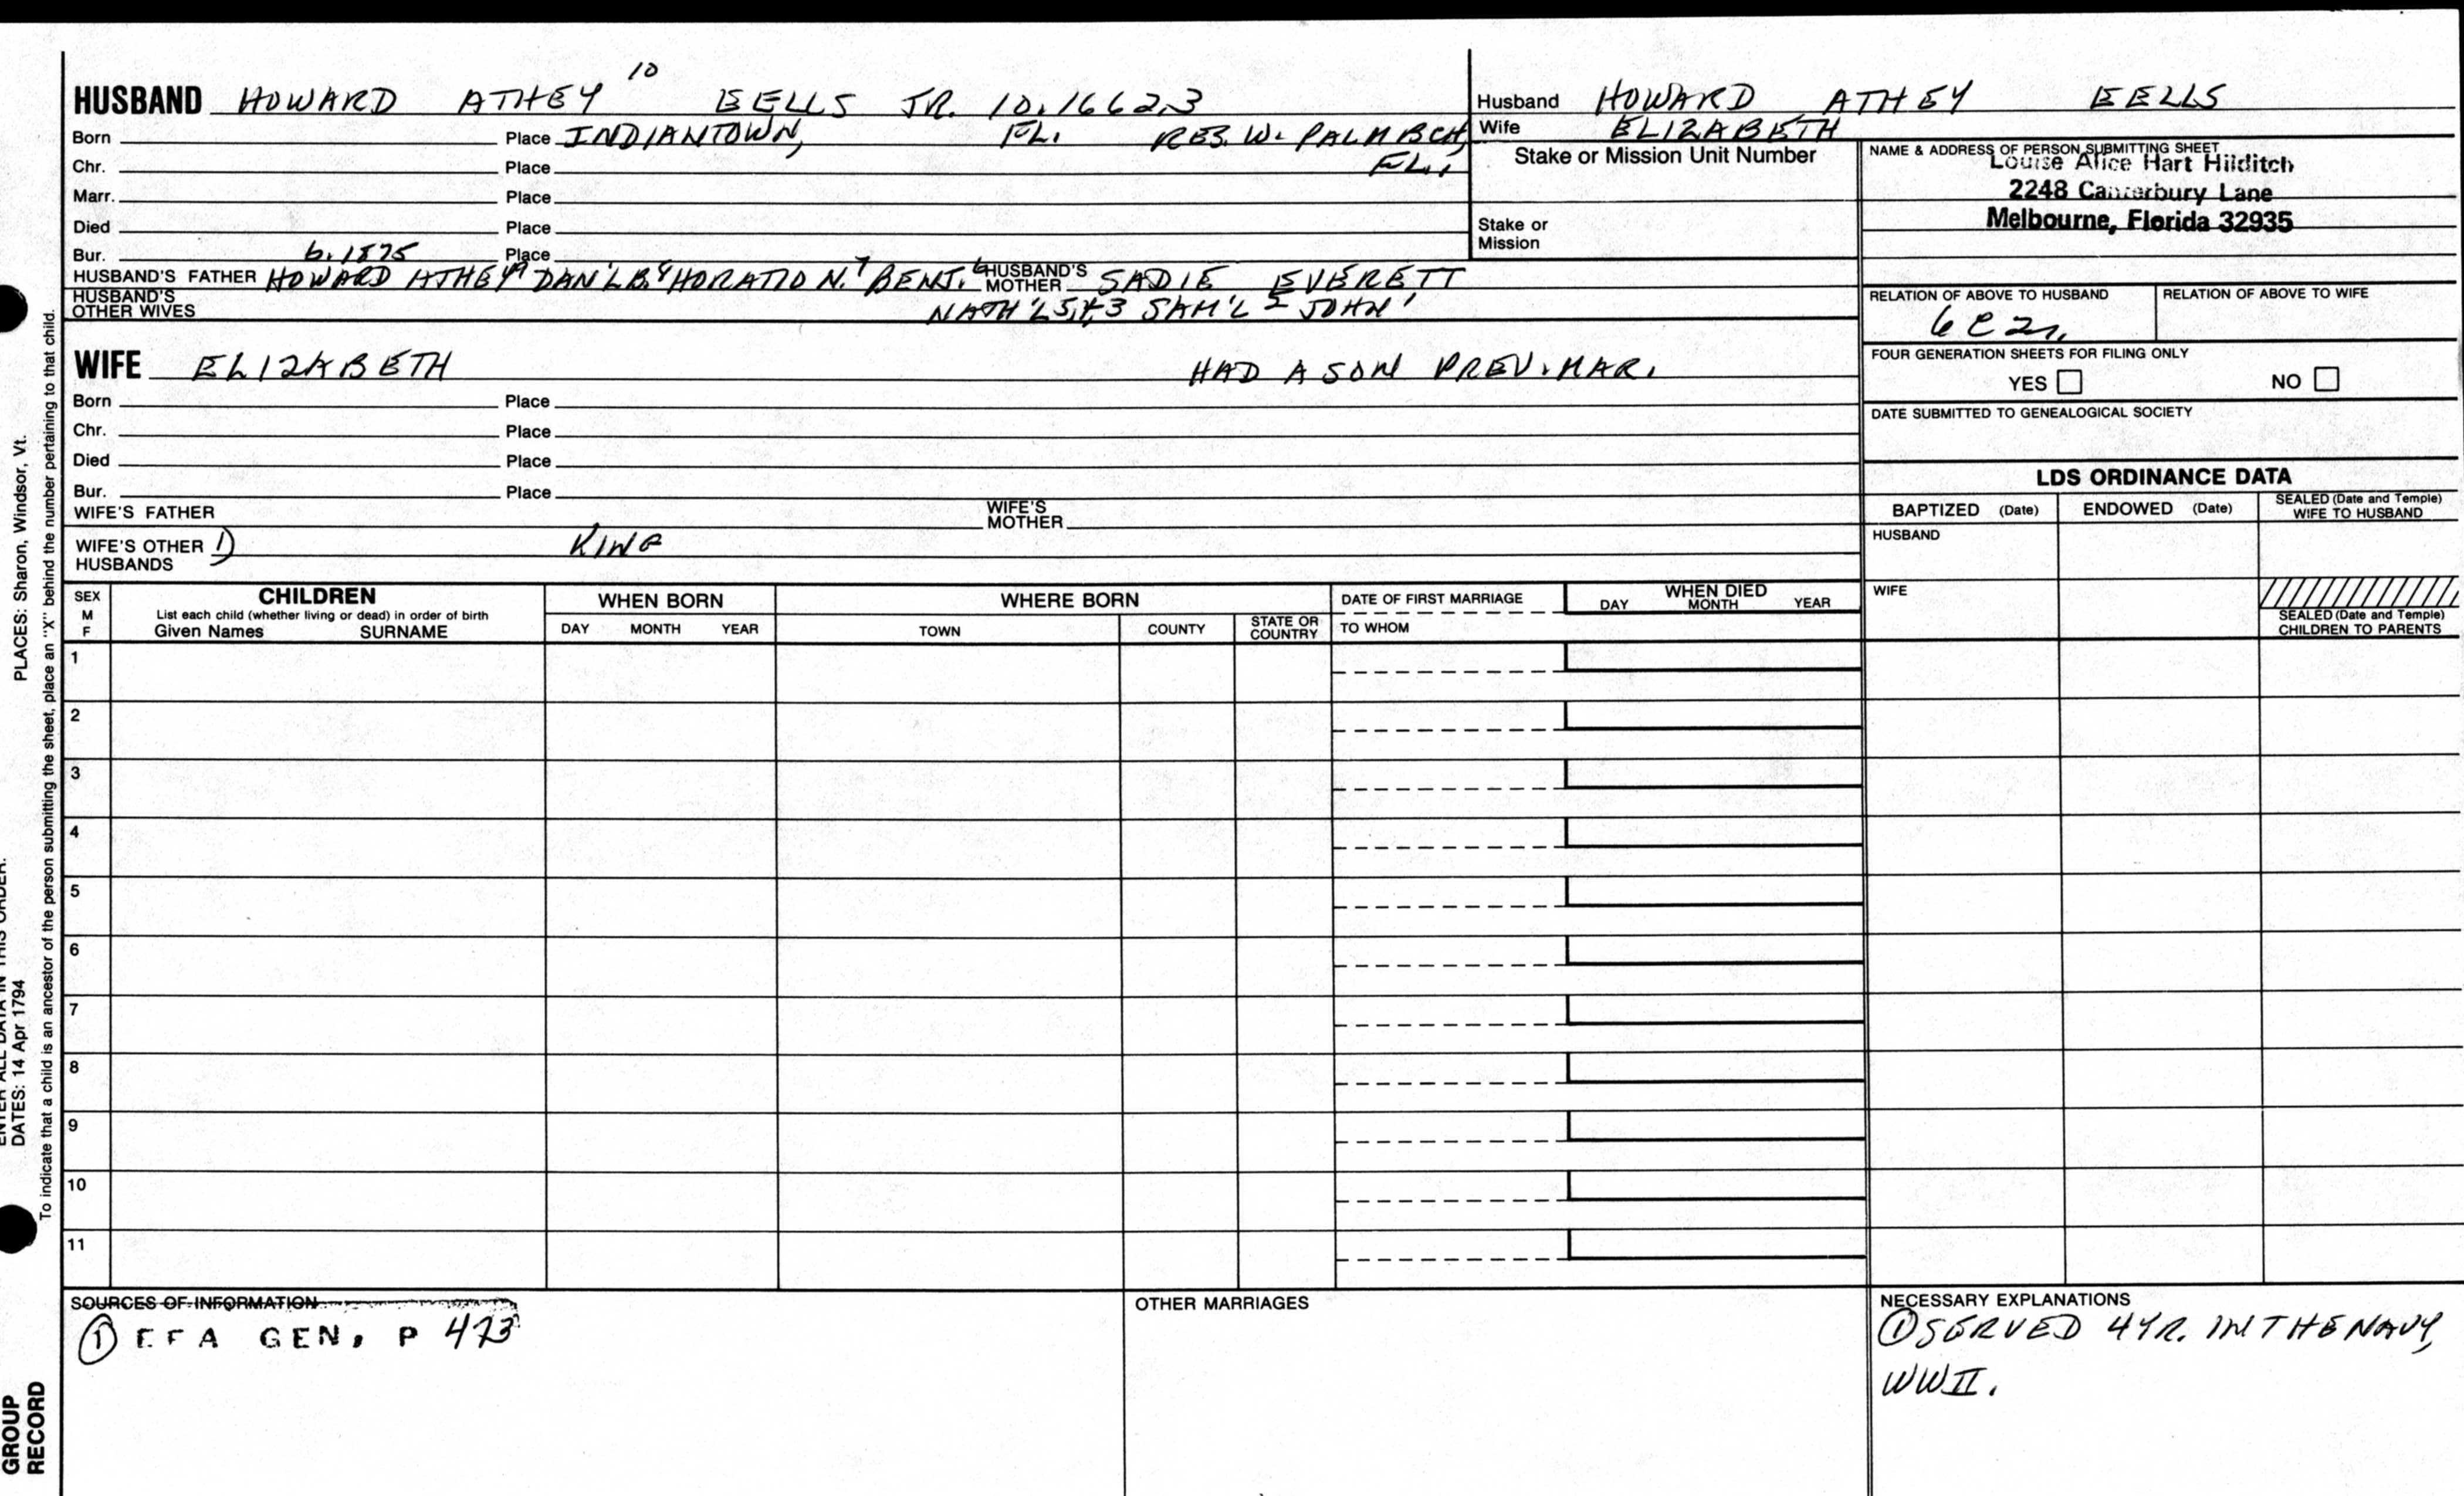 HUSBAND HOWARD ATHEY 10 EELLS JR. 10.16623
Born Place INDIANTOWN, FL. RES. W. PALM BCH, FL.,
Chr. Place
Marr. Place
Died Place
Bur. b. 1875 Place
HUSBAND'S FATHER HOWARD ATHEY 9 DAN'L B. 8 HORATIO N. 7 BENJ. 6 HUSBAND'S MOTHER SADIE EVERETT
HUSBAND'S OTHER WIVES NATH'L 5,4,3 SAM'L 2 JOHN 1
WIFE ELIZABETH HAD A SON PREV. MAR.
Born Place
Chr. Place
Died Place
Bur. Place
WIFE'S FATHER WIFE'S MOTHER
WIFE'S OTHER HUSBANDS 1) KING
Husband HOWARD ATHEY EELLS
Wife ELIZABETH
Stake or Mission Unit Number
Stake or Mission
NAME & ADDRESS OF PERSON SUBMITTING SHEET
Louise Alice Hart Hilditch
2248 Canterbury Lane
Melbourne, Florida 32935
RELATION OF ABOVE TO HUSBAND RELATION OF ABOVE TO WIFE
6C2r.
FOUR GENERATION SHEETS FOR FILING ONLY
YES NO
DATE SUBMITTED TO GENEALOGICAL SOCIETY
LDS ORDINANCE DATA
BAPTIZED (Date) ENDOWED (Date) SEALED (Date and Temple) WIFE TO HUSBAND
HUSBAND
WIFE
SEALED (Date and Temple) CHILDREN TO PARENTS
SEX M F
CHILDREN
List each child (whether living or dead) in order of birth
Given Names SURNAME
WHEN BORN
DAY MONTH YEAR
WHERE BORN
TOWN COUNTY STATE OR COUNTRY
DATE OF FIRST MARRIAGE
TO WHOM
WHEN DIED
DAY MONTH YEAR
1
2
3
4
5
6
7
8
9
10
11
SOURCES OF INFORMATION
1 EFA GEN, P 473
OTHER MARRIAGES
NECESSARY EXPLANATIONS
1 SERVED 4 YR. IN THE NAVY,
WW II.
ENTER ALL DATA IN THIS ORDER:
DATES: 14 Apr 1794
PLACES: Sharon, Windsor, Vt.
To indicate that a child is an ancestor of the person submitting the sheet, place an "X" behind the number pertaining to that child.
GROUP
RECORD